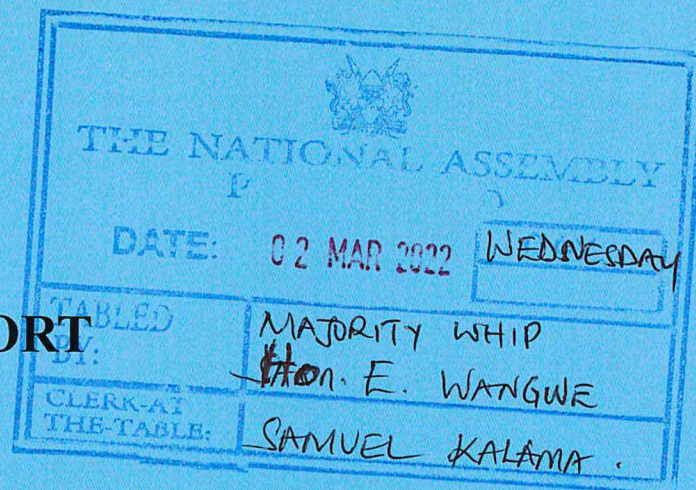 THE NATIONAL ASSEMBLY
DATE: 02 MAR 2022 WEDNESDAY
TABLED BY: MAJORITY WHIP
Hon. E. WANGWE
CLERK-AT THE-TABLE: SAMUEL KALAMA.
ORT